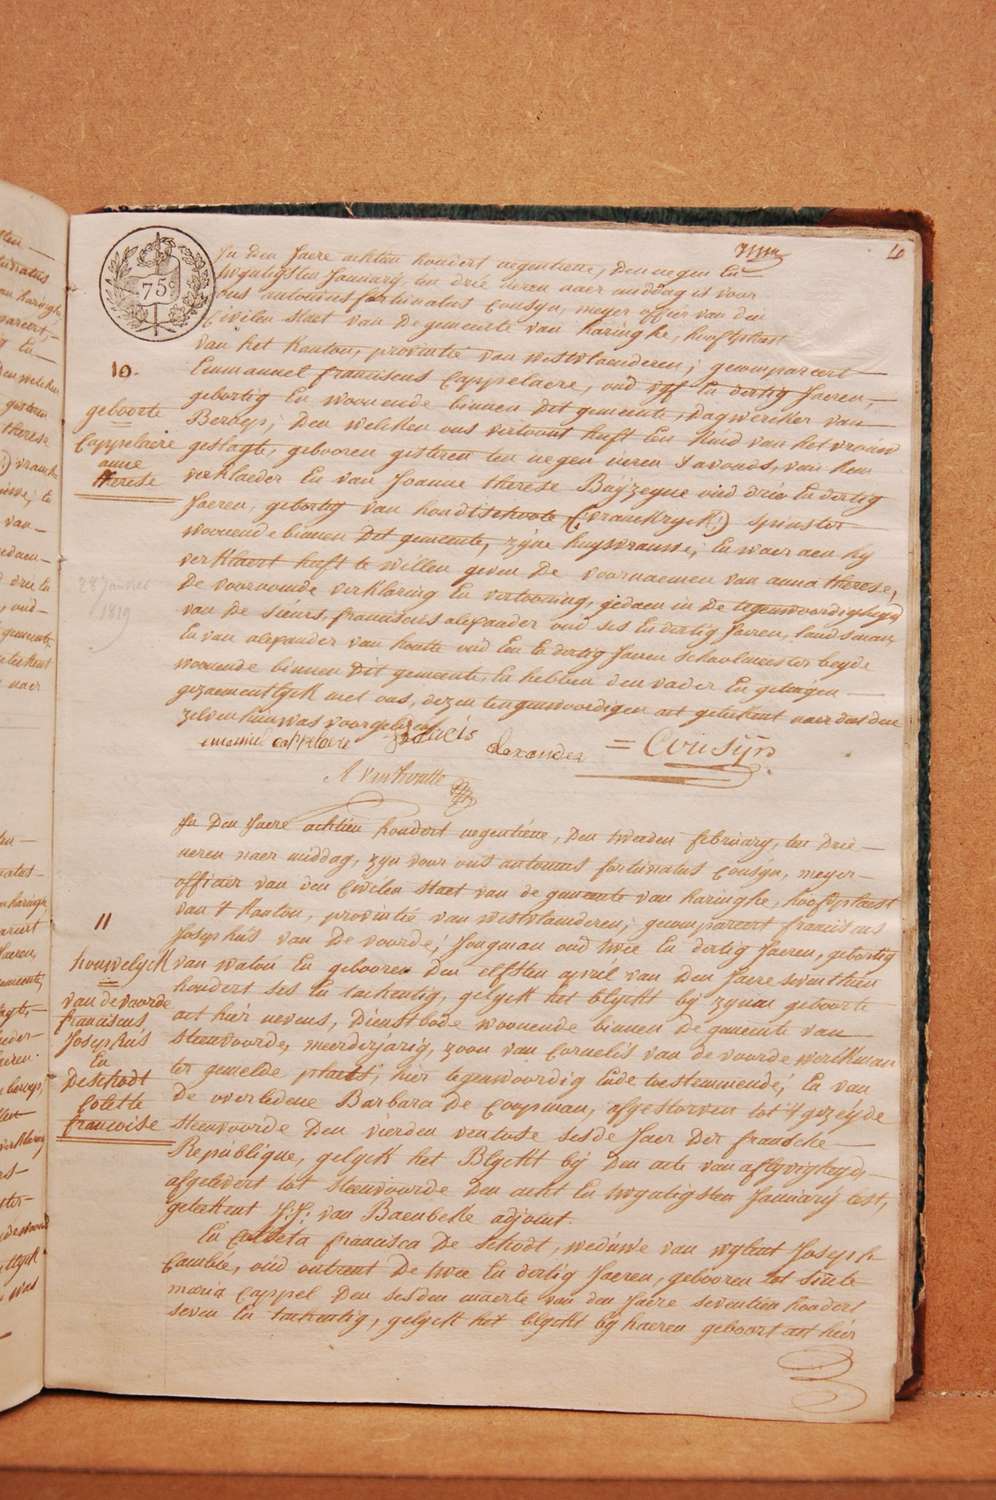 6
75c
In den Jaere achtien hondert negentiene, den negen En
twyntigsten January, ten drie ueren naer middag is voor
ons antonius fortunatus Cousyn, meyer officier van den
Civilen Staet van De gemeente van haringhe, hooftplaets
van het Kanton, provintie van westvlaenderen; gecompareert
Emmanuel franciscus Cappelaere, oud vyf En dertig Jaeren,
gebortig En woonende binnen Dit gemeente, Dagwerker van
Beroep; Den welcken ons vertoont heeft Een kind van het vrouw
geslagte, gebooren gisteren ten negen ueren s'avonds, van hem
verklaeder En van Joanne therese Buÿzegne oud drie En dertig
Jaeren, gebortig van hondtschoote (:vranckryck:) spinster
woonende binnen Dit gemeente, zÿne huysvrauwe; En waer aen hy
verklaert heeft te willen geven De voornaemen van anna therese,
De voornoemde verklaring En vertooning, gedaen in De tegenwoordigheyd
van De sieurs, franciscus alexander oud ses En dertig Jaeren, landsman,
En van alexander van houtte oud Een En dertig Jaeren schoolmeester beyde
woonende binnen Dit gemeente, En hebben den vader En getuigen
gezaementlyck met ons, dezen tengenwoordigen act geteekent naer dat den
zelven hun was voorgelezen
10.
geboorte
Cappelaire
anne
therese
28 Janvier
1819
emanuel cappelaere
alexander
= Cousÿn
A Vanhoutte
In Den Jaere achtien hondert negentiene, Den tweeden february, ten Drie
ueren naer middag, zyn voor ons antonius fortunatus Cousÿn, meyer
officier van den Civilen Staet van de gemeente van haringhe, hooftplaets
van 't Kanton, provintie van westvlaenderen; gecompareert franciscus
Josephus van De voorde; Jongman oud twee En dertig Jaeren, gebortig
van watou En gebooren den elfsten april van Den Jaere seventhien
hondert ses En tachentig, gelyck het blyckt by zynen geboorte
act hier nevens, Dienstbode woonende binnen De gemeente van
steenvoorde, meerderjarig, zoon van Cornelis van de voorde werkman
ter gemelde plaets; hier tegenwoordig Ende toestemmende; En van
De overledene Barbara De Coopman, afgestorven tot 't gezeyde
steenvoorde Den vierden ventose sesde Jaer Der fransche
République, gelyck het Blyckt by Den acte van aflyvigheyd,
afgelevert tot steenvoorde Den acht En twyntigsten January lest,
geteekent J: J: van Baenbeke adjoint.
En Coleta francisca De Schodt, weduwe van wylent Joseph
Cambié, oud ontrent De twee En dertig Jaeren, gebooren tot sinte
maria Cappel Den sesden maerte van den Jaere seventien hondert
seven En tachentig, gelyck het blyckt by haeren geboort act hier
11
houwelyck
van de voorde
franciscus
Josephus
En
De schodt
Colette
françoise